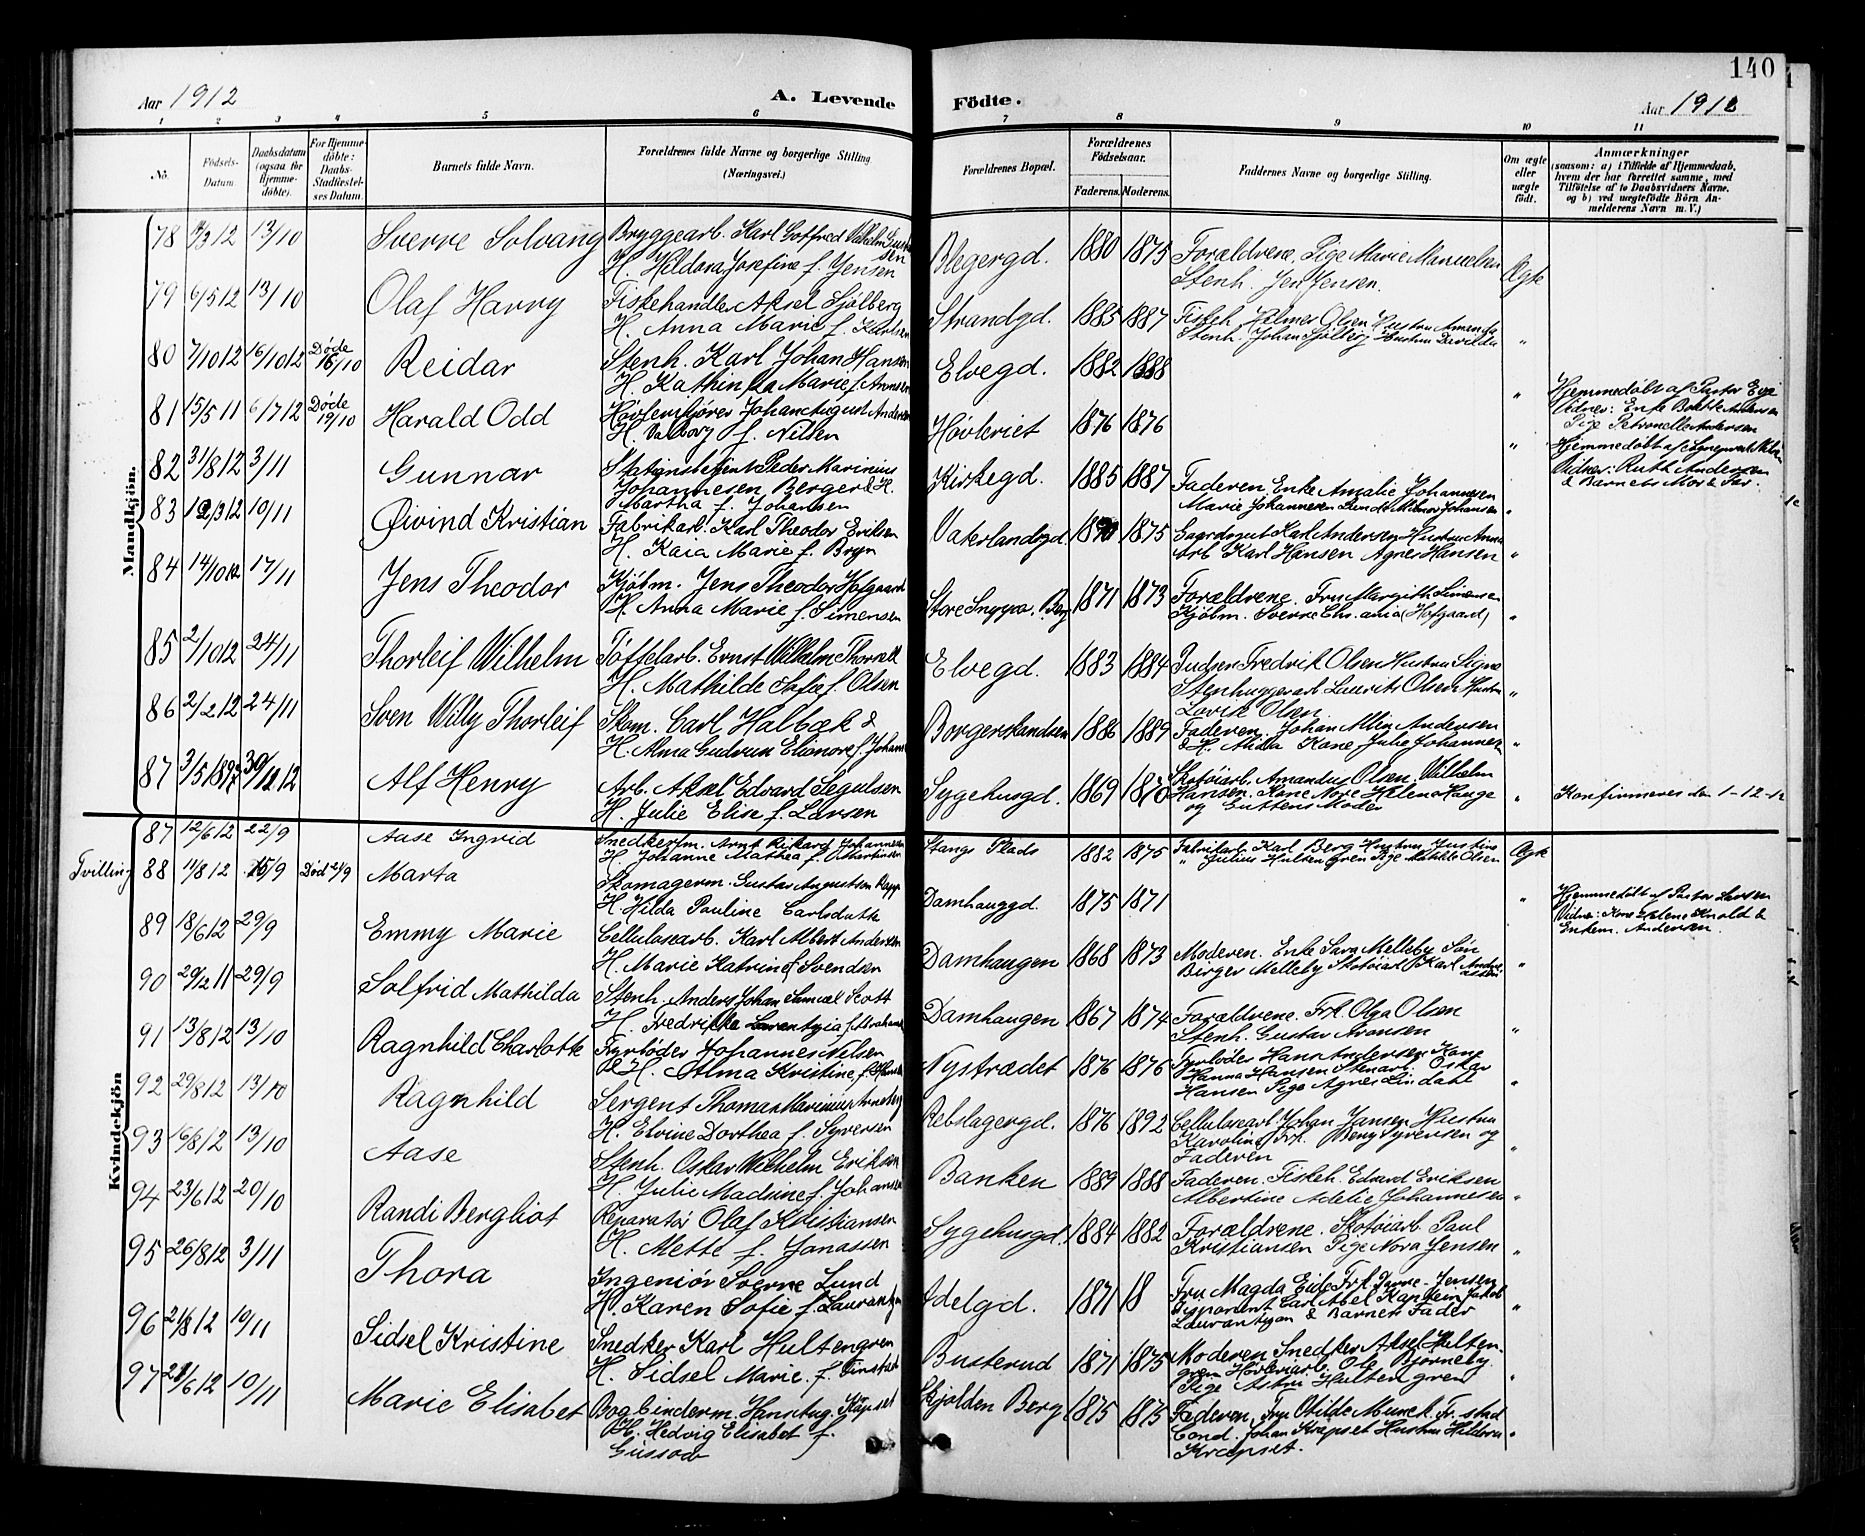 140
Aar 1912
A. Levende
Födte.
Aar 1912
1 2 3 4 5 6 7 8 9 10 11
No.
Födsels-Datum.
Daabsdatum (ogsaa for Hjemmedöbte).
For Hjemmedöbte: Daabs-Stadfæstelses Datum.
Barnets fulde Navn.
Forældrenes fulde Navne og borgerlige Stilling. (Næringsvei.)
Forældrenes Bopæl.
Forældrenes Födselsaar.
Faderens. Moderens.
Faddernes Navne og borgerlige Stilling.
Om ægte eller uægte födt.
Anmærkninger
(saasom: a) i Tilfælde af Hjemmedaab,
hvem der har forrettet samme, med
Tilföielse af to Daabsvidners Navne.
og b) ved uægtefödte Börn Anmelderens Navn m. V.)
Mandkjön.
78 3 12 13/10 Sverre Solvang Bryggearb. Karl Gotfred Vilhelm
H. Hildora Josefine f. Jensen
Blegergd. 1880 1875 Forældrene, Pige Marie Manuelsen
Stenh. Jens Jensen. Ægte
79 6/5 12 13/10 Olaf Harry Fiskehandler Aksel Sjølberg
H. Anna Marie f. Karlsen
Strandgd. 1885 1887 Fiskeh. Helmer Olsen Hustru Amanda
Stenh. Johan Sjølberg Hustru "
80 7/10 12 16/10 12 Døde 16/10 Reidar Stenh. Karl Johan Hansen
H. Kathinka Marie f. Annsen
Elvegd. 1882 1888 "
Hjemmedøbt af Pastor Eie
81 15/5 11 6/7 12 Døde 19/10 Harald Odd Høvlerikjører Johan August Andersen
H. Valborg f. Nilsen
Høvleriet 1876 1876 "
Vidner: Enke Andersen
Pige Petronelle Andersen
82 31/8 12 3/11 Gunnar Stationsbetjent Peder Marinius
Johannesen Berger & H.
Martha f. Johansen
Kirkegd. 1885 1887 Faderen Enke Amalie Johannesen
Marie Johannesen "
Hjemmedøbt af
Vidner: Ruth Andersen
& Barnets Mor & Far.
83 12/3 12 10/11 Øivind Kristian Fabrikarb. Karl Theodor Eriksen
H. Kaia Marie f. Bryn
Vaterlandsgd. 1875 Gaardsgut Karl Andersen Hustru Anna
Arb. Karl Hansen Agnes Hansen "
84 14/10 12 17/11 Jens Theodor Kjøbm. Jens Theodor Hofgaard
H. Anna Marie f. Simensen
Store Berg 1871 1873 Forældrene. Fru Margith Simensen
Kjøbm. Sverre Chr.ania (Hofgaard) "
85 2/10 12 24/11 Thorleif Wilhelm Tøffelarb. Ernst Wilhelm Thorsell
H. Mathilde Sofie f. Olsen
Elvegd. 1883 1884 Fredrik Olsen Hustru Signe
Stenhuggerarb Laurits Olsen Hustru
Lovise Olsen "
86 2/2 12 24/11 Sven Willy Thorleif Skom. Carl Halbæk &
H. Alma Gudrun Elionore f. Johans
Borgerskandsen 1886 1889 Faderen. Johan Albin Andersen
& H. Alida Kone Julie Johannesen "
87 3/5 1897 30/11 12 Alf Henry Arb. Aksel Edvard Segulsen
H. Julie Elise f. Larsen
Sygehusgd. 1869 1870 Skotøiarb. Amandus Olsen. Wilhelm
Hansen. Kone Nore Helene Hauge
og Guttens Moder "
Konfirmeres den 1-12-12
Kvindekjön
87 12/6 12 22/9 Aase Ingrid Snedkerm. Arnt Rikard Johannesen
H. Johanne Mathea f. Martinsen
Stangs Plads 1882 1875 Fabrikarb. Karl Berg Hustru Justine
" Julius Hultengren Pige Matilde Olsen Ægte
Tvilling 88 11/8 12 15/9 Død 21/9 Marta Skomagerm. Gustav Augustson Rapp
H. Hilda Pauline Carlsdatte
Damhauggd. 1875 1871 "
Hjemmedøbt af Pastor Larsen
Vidner: Kone Helene Knold &
Enkem. Andersen.
89 18/6 12 29/9 Emmy Marie Cellulosearb. Karl Albert Andersen
H. Marie Katrine f. Svendsen
Damhaugen 1868 1873 Moderen. Enke Sara Melleby Søn
Birger Melleby Skotøiarb Karl Andreassen "
90 29/12 11 29/9 Solfrid Mathilda Stenh. Anders Johan Samuel Scott
H. Fredrikke Laventgia f. Abraham
Damhaugen 1867 1874 Forældrene. Frk. Olga Olsen
Stenh. Gustav Aronsen "
91 13/8 12 13/10 Ragnhild Charlotte Fyrbøder Johannes Nilsen
& H. Alma Kristine f.
Nystrædet 1876 1876 Fyrbøder Hans Andersen Kone
Hanna Hansen Stenarb. Oskar
Hansen Pige Agnes Lindahl "
92 29/8 12 13/10 Ragnhild Sergent Thomas Marinius Arneberg
H. Elvine Dorthea f. Syversen
Rebslagergd. 1876 1892 Cellulosearb. Johan Jansen Hustru
Karoline Frk. Beny Syversen og
Faderen "
93 16/8 12 13/10 Aase Stenh. Oskar Wilhelm Eriksen
H. Julie Madsine f. Johansen
Banken 1889 1888 Faderen. Fiskeh. Edvard Eriksen
Albertine Adelie Johannesen "
94 23/6 12 20/10 Randi Bergliot Reparatør Olaf Kristiansen
H. Mette f. Jonassen
Sygehusgd. 1884 1882 Forældrene. Skotøiarb. Paul
Kristiansen Pige Nora Jensen "
95 26/8 12 3/11 Thora Ingeniør Sverre Lund
H. Karen Sofie f. Laurantzon
Adelgd. 1871 18 Fru Magda Eide Frk. Jensen
Disponent Carl Abel Kaptein Jakob
Laurantzon & Barnets Fader "
96 21/8 12 10/11 Sidsel Kristine Snedker Karl Hultengren
H. Sidsel Marie f. Finstad
Busterud 1871 1875 Moderen Snedker Aksel Hultengren
Høvleriarb. Ole Bjørneby.
Pige Astri Hultengren "
97 21/6 12 10/11 Marie Elisabet Bogbinderm. Hans Aug. Kræpset
& H. Hedvig Elisabet f.
Gussow
Skjolden Berg 1875 1875 Faderen, Fru Otilde Munck. Fr.stad
Cond. Johan Kræpset Hustru Hildora
Kræpset. "